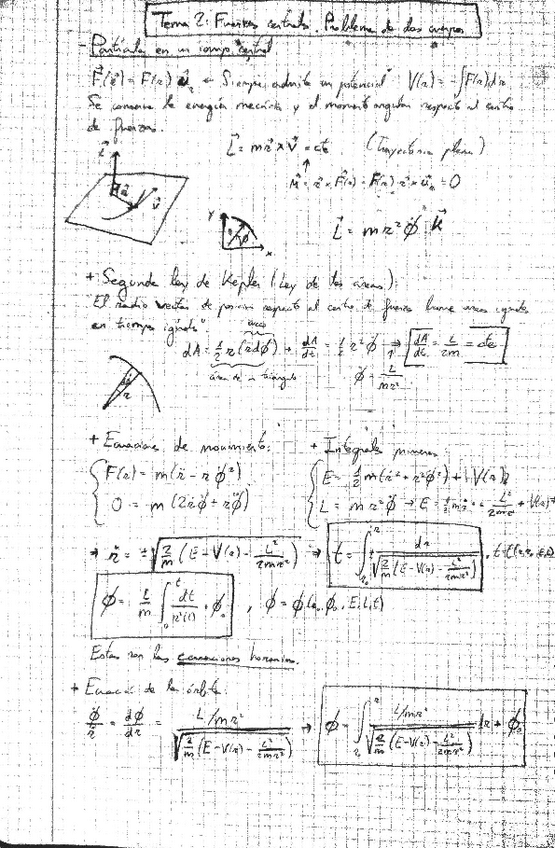 Tema 2: Fuerzas centrales. Problema de dos cuerpos
- Partícula en un campo central
F⃗(r⃗) = F(r) u⃗ᵣ ← Siempre admite un potencial V(r) = -∫F(r)dr
Se conserva la energía mecánica y el momento angular respecto al centro
de fuerzas.
L⃗ = m r⃗ × v⃗ = cte (Trayectoria plana)
M⃗ = r⃗ × F⃗(r) = F(r) · r⃗ × u⃗ᵣ = 0
L⃗
r⃗
v⃗
y
r
ϕ
x
L⃗ = m r² ϕ̇ k⃗
+ Segunda ley de Kepler (Ley de las áreas):
"El radio vector de posición respecto al centro de fuerzas barre áreas iguales
en tiempos iguales"
arco
dA = ½ r (r dϕ) → dA/dt = ½ r² ϕ̇ → dA/dt = L/2m = cte
área de un triángulo
ϕ̇ = L/mr²
dϕ
r
+ Ecuaciones de movimiento:
F(r) = m(r̈ - r ϕ̇²)
0 = m(2ṙϕ̇ + rϕ̈)
+ Integrales primeras
E = ½ m(ṙ² + r²ϕ̇²) + V(r)
L = m r² ϕ̇ → E = ½ mṙ² + L²/2mr² + V(r)
→ ṙ = ±√(2/m (E - V(r) - L²/2mr²)) → t = ∫ᵣ₀ʳ dr/√(2/m (E - V(r) - L²/2mr²)), t = t(r, r₀, E, L)
ϕ = L/m ∫₀ᵗ dt/r²(t) + ϕ₀, ϕ = ϕ(r₀, ϕ₀, E, L, t)
Estas son las ecuaciones horarias.
+ Ecuación de la órbita:
ϕ̇/ṙ = dϕ/dr = (L/mr²)/√(2/m (E - V(r) - L²/2mr²)) → ϕ = ∫ᵣ₀ʳ (L/mr²)/√(2/m (E - V(r) - L²/2mr²)) dr + ϕ₀